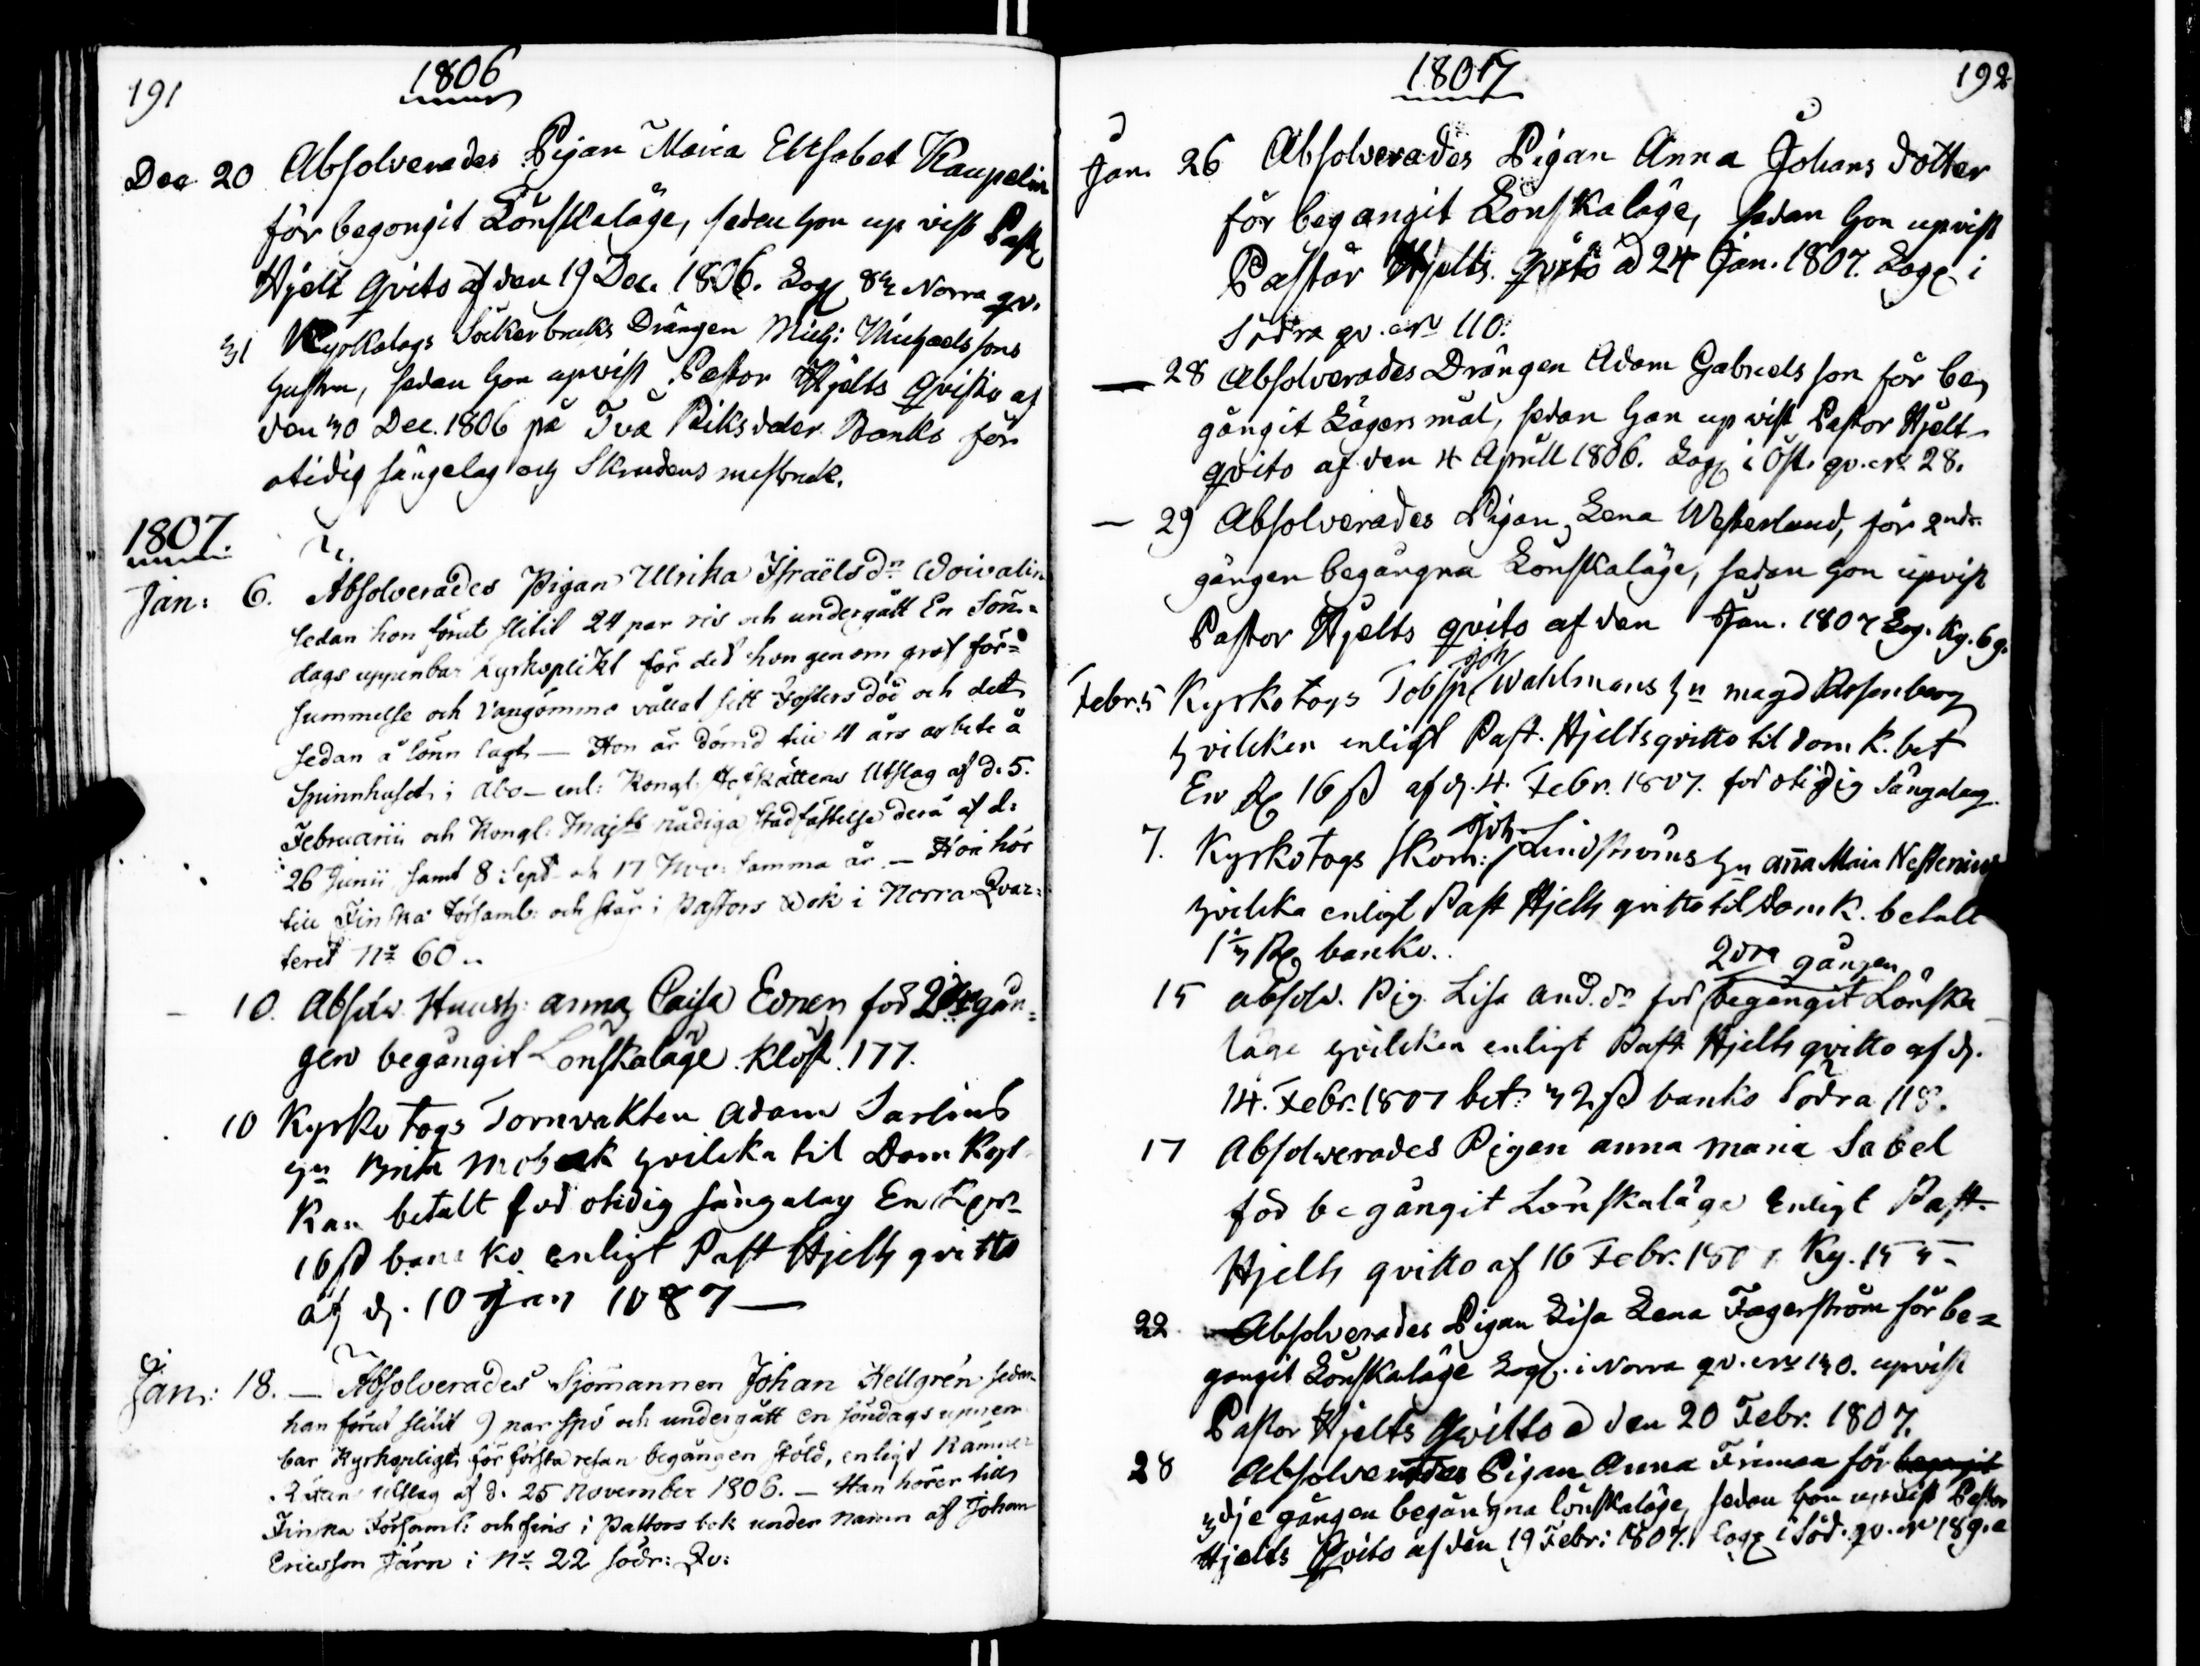 191
1806
Dec 20 Absolverades Pigan Maria Elisabet Kaupelin
för begongit Lönskaläge, sedan hon up vist Past
Hjelt qvito af den 19 Dec. 1806. Logg 83 Norra qv.
31 Kyrkotogs Sockerbruks Drängen Mich: Michaelssons
hustru, sedan hon upvist Pastor Hjelts qvitto af
den 30 Dec. 1806 på Två Riksdaler Banko för
otidig sängelag och Skrudens missbruk.
1807.
Jan: 6. Absolverades Pigan Ulrika Israëls dr Woivalin
sedan hon förut slitit 24 par ris och undergått En Sön=
dags uppenbar Kyrkoplikt för det hon genom grof för=
summelse och Vangömmo vållat sitt Fosters död och det
sedan å lönn lagt — Hon är dömd till 4 års arbete å
Spinnhuset i Åbo — enl: Kongl. Hofrättens Utslag af d. 5.
Februarii och Kongl. Majts nådiga Stadfästelse derå af d:
26 Junii samt 8: Sept och 17 Nov: samma år. — Hon hör
till Finska Församl: och står i Pastors Bok i Norra Qvar=
teret No 60..
10. Absolv. Hustr: Anna Caisa Evnen för 2dra gån=
gen begångit Lönskaläge. Klöst. 177.
10 Kyrko togs Tornvakten Adam Sarlins
hu Brita Moback hvilcka til Dom Kyr
Kan betalt för otidig sängalag En Rdr
16 ß banko enligt Past Hjelts qvitto
af d. 10 Jan 1087 —
Jan: 18. — Absolverades Sjömannen Johan Hellgrén sedan
han förut slitit 9 par spö och undergått en söndags uppen
bar Kyrkopligt för första resan begången stöld, enligt Kämner
Rättens utslag af d. 25 November 1806. — Han hörer till
Finska Församl: och fins i Pastors bok under namn af Johan
Ericsson Järn i No. 22 södr: Qv:
1807
192
Jan. 26 Absolverades Pigan Anna Johans dotter
för begangit Lönskaläge, sedan hon upvist
Pastor Hjelts qvito ad 24 Jan. 1807. Logg i
Södra qv. No 110.
— 28 Absolverades Drängen Adam Gabriels son för be,
gångit Lägersmål, sedan han up vist Pastor Hjelt
qvito af den 4 Aprill 1806. Logg i Öst. qv. No 28.
— 29 Absolverades Pigan Lena Westerlund, för 2ndr
gången begångna Lönskaläge, sedan hon upvist
Pastor Hjelts qvito af den Jan. 1807 Log. Ky. 69.
Joh
Febr. 5 Kyrkotogs Tobsp. Wahlmans hu Magd Rosenberg
hvilcken enligt Past. Hjelts qvitto til dom k. bet
En Rd 16 ß af d. 4. Febr. 1807. för otidig Sängalag.
Joh
7. Kyrkotogs Skom: Lindströms hu Anna Maria Nestenius
hvilcka enligt Past Hjelts qvitto til Dom K. betalt
1 1/3 Rd banko.
2dra gången
15 Absolv. Pig. Lisa And. dr för begångit Lönska
läge hvilcken enligt Past Hjelts qvitto af d.
14. Febr. 1807 bet: 32 ß banko Södra 118.
17 Absolverades Pigan Anna Maria Sabel
för begångit Lönskaläge Enligt Past.
Hjelts qvitto af 16 Febr. 1807. Ky. 155
22 Absolverades Pigan Lisa Lena Fagerström för be=
gangit Lönskaläge Logg. i Norra qv. No 130. upvist
Pastor Hjelts Qvitto ad den 20 Febr. 1807.
28 Absolverades Pigan Anna Friman för begangit
3dje gången begångna lönskaläge, sedan hon upvist Pastor
Hjelts Qvito af den 19 Febr: 1807. Logg i Söd. qv. No 189.a